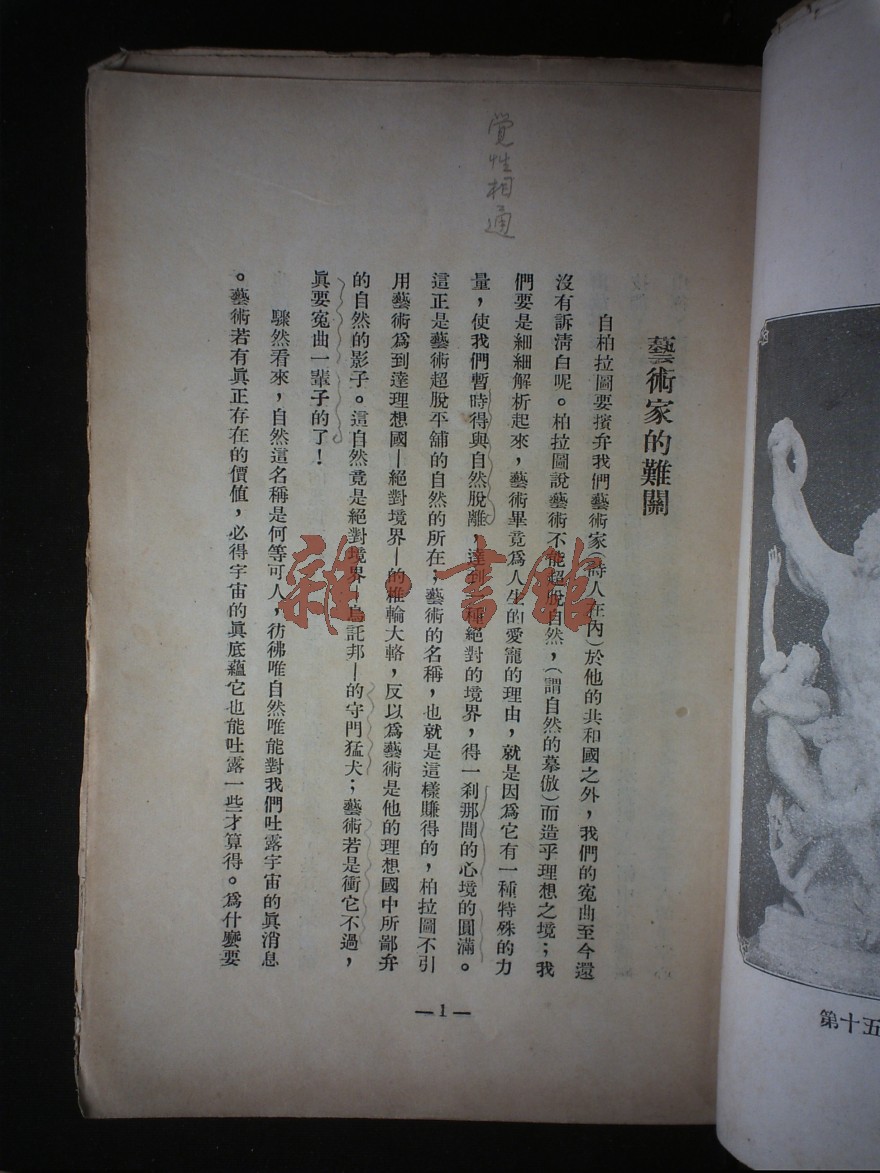 第十五
覚性相通
藝術家的難關
自柏拉圖要擯弃我們藝術家(詩人在內)於他的共和國之外，我們的寃曲至今還
沒有訴淸白呢。柏拉圖說藝術不能超脫自然，(謂自然的摹倣)而造乎理想之境；我
們要是細細解析起來，藝術畢竟爲人生的愛寵的理由，就是因爲它有一種特殊的力
量，使我們暫時得與自然脫離，達到一種絕對的境界，得一刹那間的心境的圓滿。
這正是藝術超脫平舖的自然的所在；藝術的名稱，也就是這樣賺得的，柏拉圖不引
用藝術爲到達理想國—絕對境界—的椎輪大輅，反以爲藝術是他的理想國中所鄙弃
的自然的影子。這自然竟是絕對境界—烏託邦—的守門猛犬；藝術若是衝它不過，
眞要寃曲一輩子的了！
驟然看來，自然這名稱是何等可人，彷彿唯自然唯能對我們吐露宇宙的眞消息
。藝術若有眞正存在的價值，必得宇宙的眞底蘊它也能吐露一些才算得。爲什麽要
—1—
雜·書館